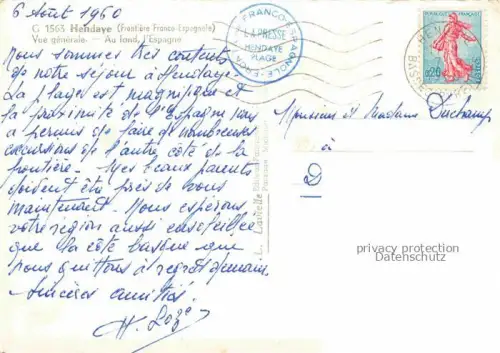 6 Août 1960
G 1565 Hendaye (Frontière Franco-Espagnole)
Vue générale. — Au fond, l'Espagne
Nous sommes très contents
de notre séjour à Hendaye.
La plage est magnifique et
la proximité de l'Espagne nous
a permis de faire de nombreuses
excursions de l'autre côté de la
frontière. Mes beaux parents
doivent être près de vous
maintenant. Nous espérons
votre région aussi ensoleillée
que la côte basque que
nous quittons à regret demain.
Sincères amitiés.
FRANCO-ESPAGNOLE
LA PRESSE
HENDAYE
PLAGE
0,20
POSTES
Monsieur et Madame Duchamp
à
D
privacy protection
Datenschutz